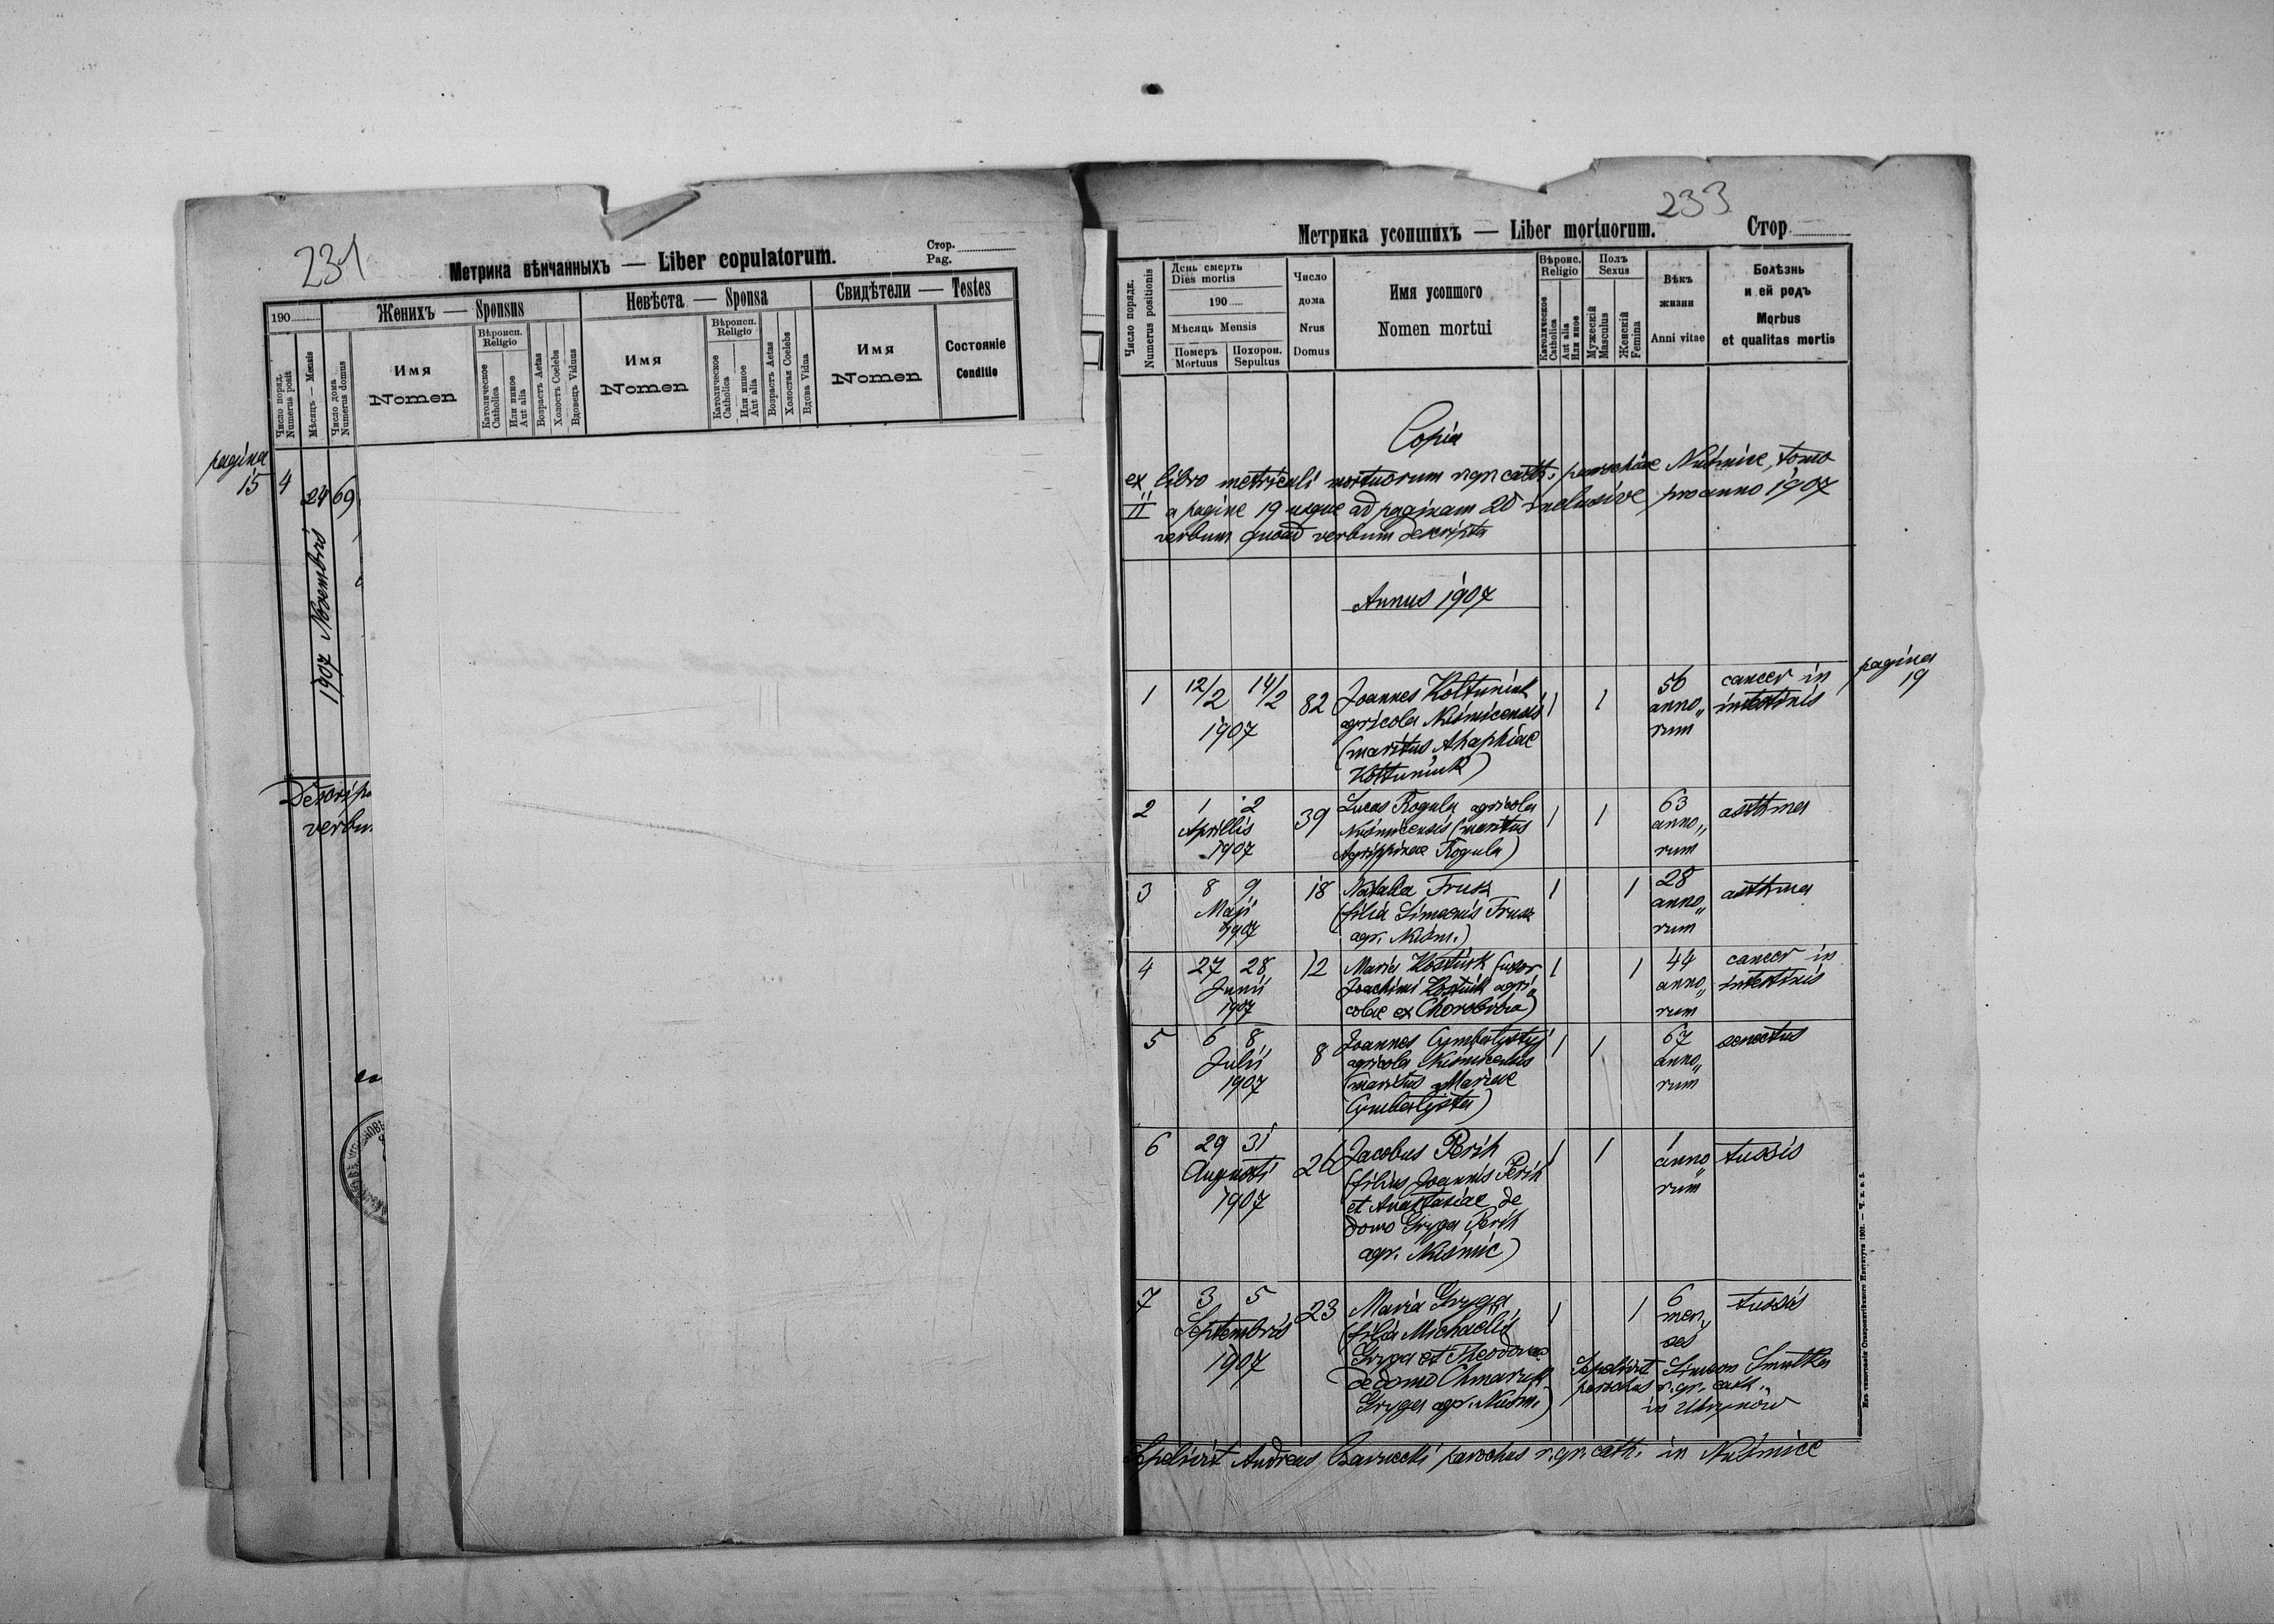 231
Метрика вѣнчанныхъ — Liber copulatorum.
Стор.
Pag.
190
Женихъ — Sponsus
Невѣста — Sponsa
Свидѣтели — Testes
Число поряд.
Numerus posit
Мѣсяцъ — Mensis
Число дома
Numerus domus
Имя
Nomen
Вѣроисп.
Religio
Католическое
Catholica
Или инное
Aut alia
Возрастъ Aetas
Холостъ Coelebs
Вдовецъ Viduus
Имя
Nomen
Вѣроисп.
Religio
Католическое
Catholica
Или инное
Aut alia
Возрастъ Aetas
Холостая Coelebs
Вдова Vidua
Имя
Nomen
Состояніе
Conditio
pagina
15
4
24
69
1907 Novembris
Descrip
verbu
233
Метрика усопшихъ — Liber mortuorum.
Стор
Число порядк.
Numerus positionis
День смерть
Dies mortis
190
Мѣсяць Mensis
Померъ
Mortuus
Похорон.
Sepultus
Число
дома
Nrus
Domus
Имя усопшого
Nomen mortui
Вѣроис.
Religio
Католическое
Catholica
Aut alia
Или иное
Полъ
Sexus
Мужескій
Masculus
Женскій
Femina
Вѣкъ
жизни
Anni vitae
Болѣзнь
и ей родъ
Morbus
et qualitas mortis
Copia
ex libro metricali mortuorum r.gr. cath. parochiae Nuśmice, tomo
II a pagine 19 usque ad paginam 20 inclusive pro anno 1907
verbum quoad verbum descripta
Annus 1907
pagina
19
1 12/2 14/2 82 Joannes Kołtuniuk 1 1 56 cancer in
1907 agricola Nuśmicensis annorum intestinis
(maritus Ahaphiae
Kołtuniuk)
2 1 2 39 Lucas Rogula agricola 1 1 63 asthma
Aprillis Nuśmicensis (maritus anno„
1907 Agrippinae Rogula) rum
3 8 9 18 Natalia Frusz 1 1 28 asthma
Maji (filia Simeonis Frusz anno„
1907 agr. Nuśm.) rum
4 27 28 12 Maria Kostiuk (uxor 1 1 44 cancer in
Junii Joachimi Kostiuk agri„ anno„ intestinis
1907 colae ex Chorobrów) rum
5 6 8 8 Joannes Cymbalystyj 1 1 67 senectus
Julii agricola Nuśmicensis anno„
1907 (maritus Mariae rum
Cymbalysta)
6 29 31 26 Jacobus Perih 1 1 1 tussis
Augusti (filius Joannis Perih anno„
1907 et Anastasiae de rum
domo Gryga Perih
agr. Nuśmic)
7 3 5 23 Maria Gryga 1 1 6 tussis
Septembris (filia Michaelis men„
1907 Gryga et Theodorae ses
de domo Chmaruk Sepelivit Simeon Smulka
Gryga agr. Nuśm.) parochus r.gr. cath.
in Uhrynow
Sepelivit Andreas Barnecki parochus r.gr. cath. in Nuśmice